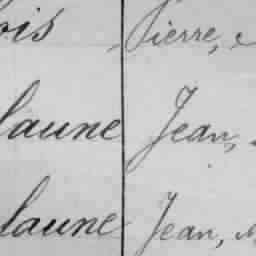 ois Pierre,
laune Jean,
laune Jean,